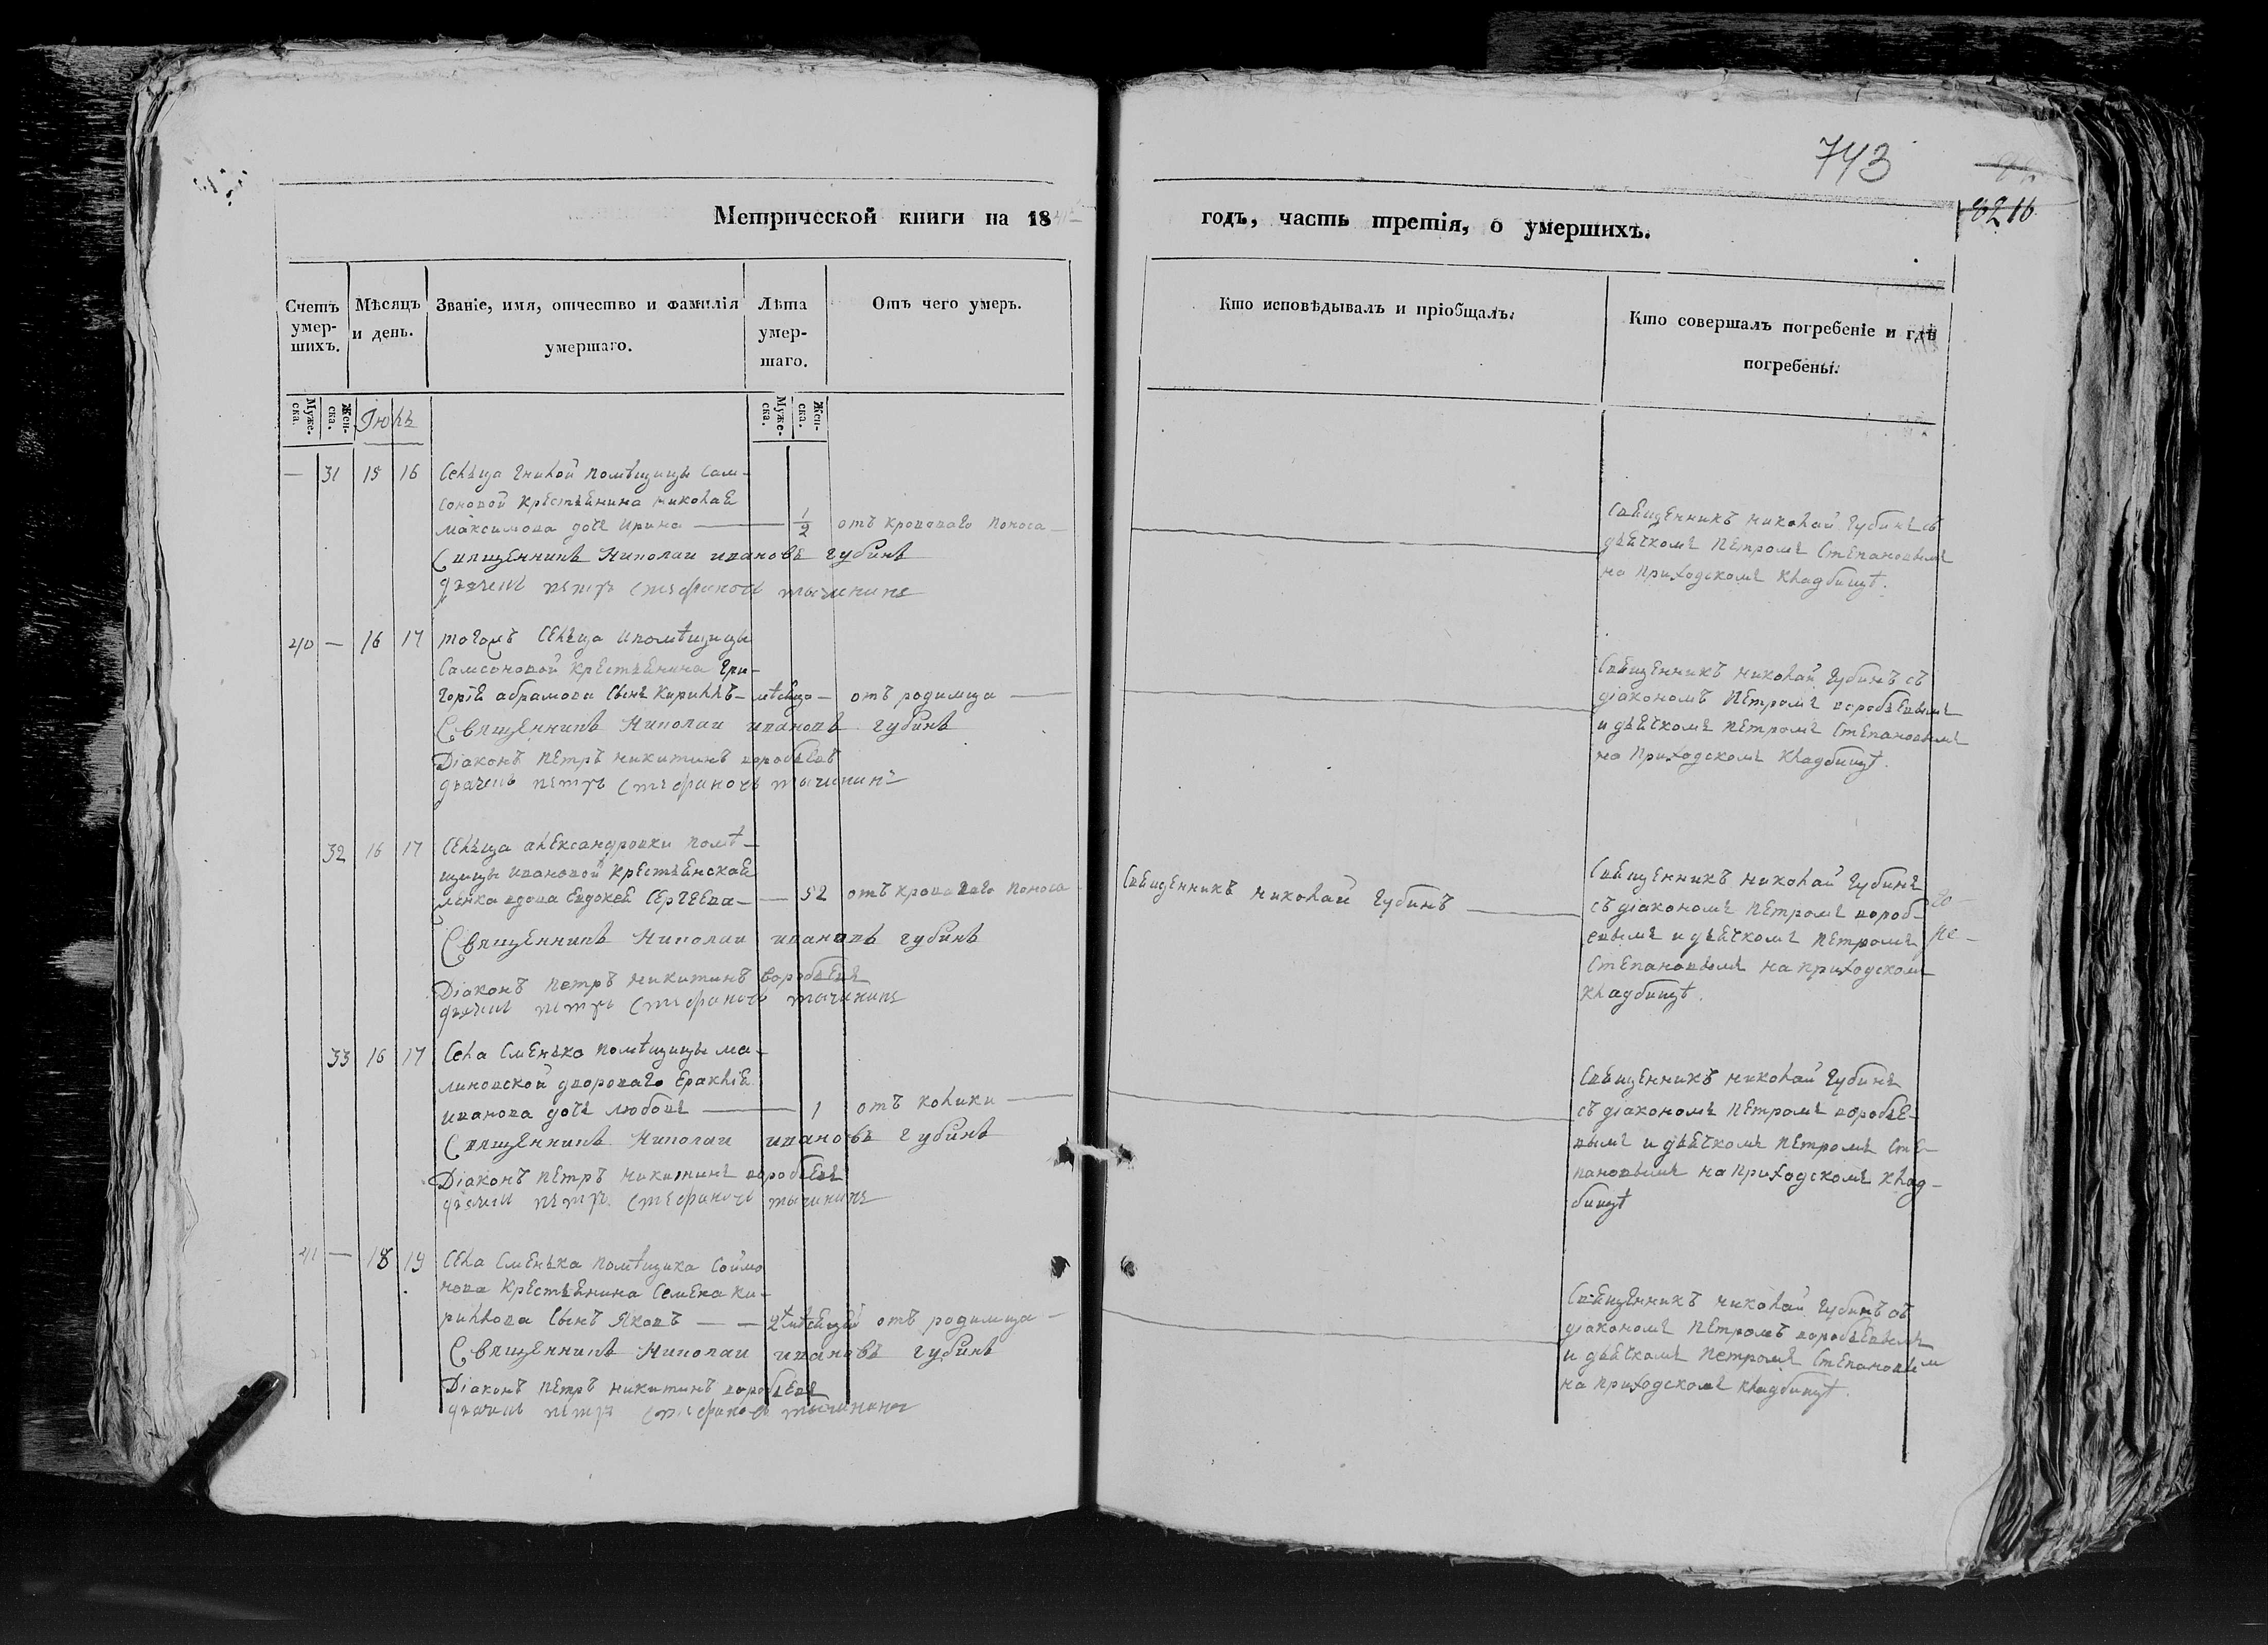 743
8216
Метрической книги на 18
годъ, часть третія, о умершихъ.
Счетъ умер-шихъ.
Мѣсяцъ и день.
Званіе, имя, отчество и фамилія умершаго.
Лѣта умер-шаго.
Отъ чего умеръ.
Кто исповѣдывалъ и пріобщалъ.
Кто совершалъ погребеніе и гдѣ погребены.
Муже-ска.
Жен-ска.
Муже-ска.
Жен-ска.
Іюль
— 31 15 16 Сельца помѣщицы Сам-
соновой крестьянина николая
максимова дочь Ирина — 1/2 отъ кроваваго поноса —
Священникъ Николаи ивановъ губинъ
дьячекъ петръ стефановъ тычининъ
Священникъ николай Губинъ съ
дьячкомъ Петромъ Степановымъ
на приходскомъ кладбищѣ.
40 — 16 17 тогожъ сельца и помѣщицы
Самсоновой крестьянина Гри-
горія абрамова сынъ Кириллъ — мѣсяца — отъ родимца —
Священникъ Николаи ивановъ губинъ
Діаконъ Петръ никитинъ воробьевъ
дьячекъ петръ стефановъ тычининъ
Священникъ николай Губинъ съ
діакономъ Петромъ воробьевымъ
и дьячкомъ Петромъ Степановымъ
на приходскомъ кладбищѣ.
32 16 17 Сельца александровки помѣ-
щицы ивановой крестьянская
женка вдова Евдокея Сергеева — 52 отъ кроваваго поноса
Священникъ николай Губинъ —
Священникъ Николаи ивановъ губинъ
Діаконъ Петръ никитинъ воробьевъ
дьячекъ петръ стефановъ тычининъ
Священникъ николай Губинъ
съ діакономъ Петромъ вороб-
евымъ и дьячкомъ Петромъ
Степановымъ на приходскомъ
кладбищѣ.
33 16 17 Села Смѣнька помѣщицы ма-
линовской двороваго Ераклія
иванова дочь любовь — 1 отъ колики —
Священникъ Николаи ивановъ губинъ
Діаконъ Петръ никитинъ воробьевъ
дьячекъ петръ стефановъ тычининъ
Священникъ николай Губинъ
съ діакономъ Петромъ воробье-
вымъ и дьячкомъ Петромъ Сте-
пановымъ на приходскомъ клад-
бищѣ
41 — 18 19 Села Смѣнька помѣщика Соймо
нова крестьянина Семена Ки-
рилова сынъ Яковъ — — отъ родимца —
Священникъ Николаи ивановъ губинъ
Діаконъ Петръ никитинъ воробьевъ
дьячекъ петръ стефановъ тычининъ
Священникъ николай Губинъ съ
діакономъ Петромъ воробьевымъ
и дьячкомъ Петромъ Степановым
на приходскомъ кладбищѣ.